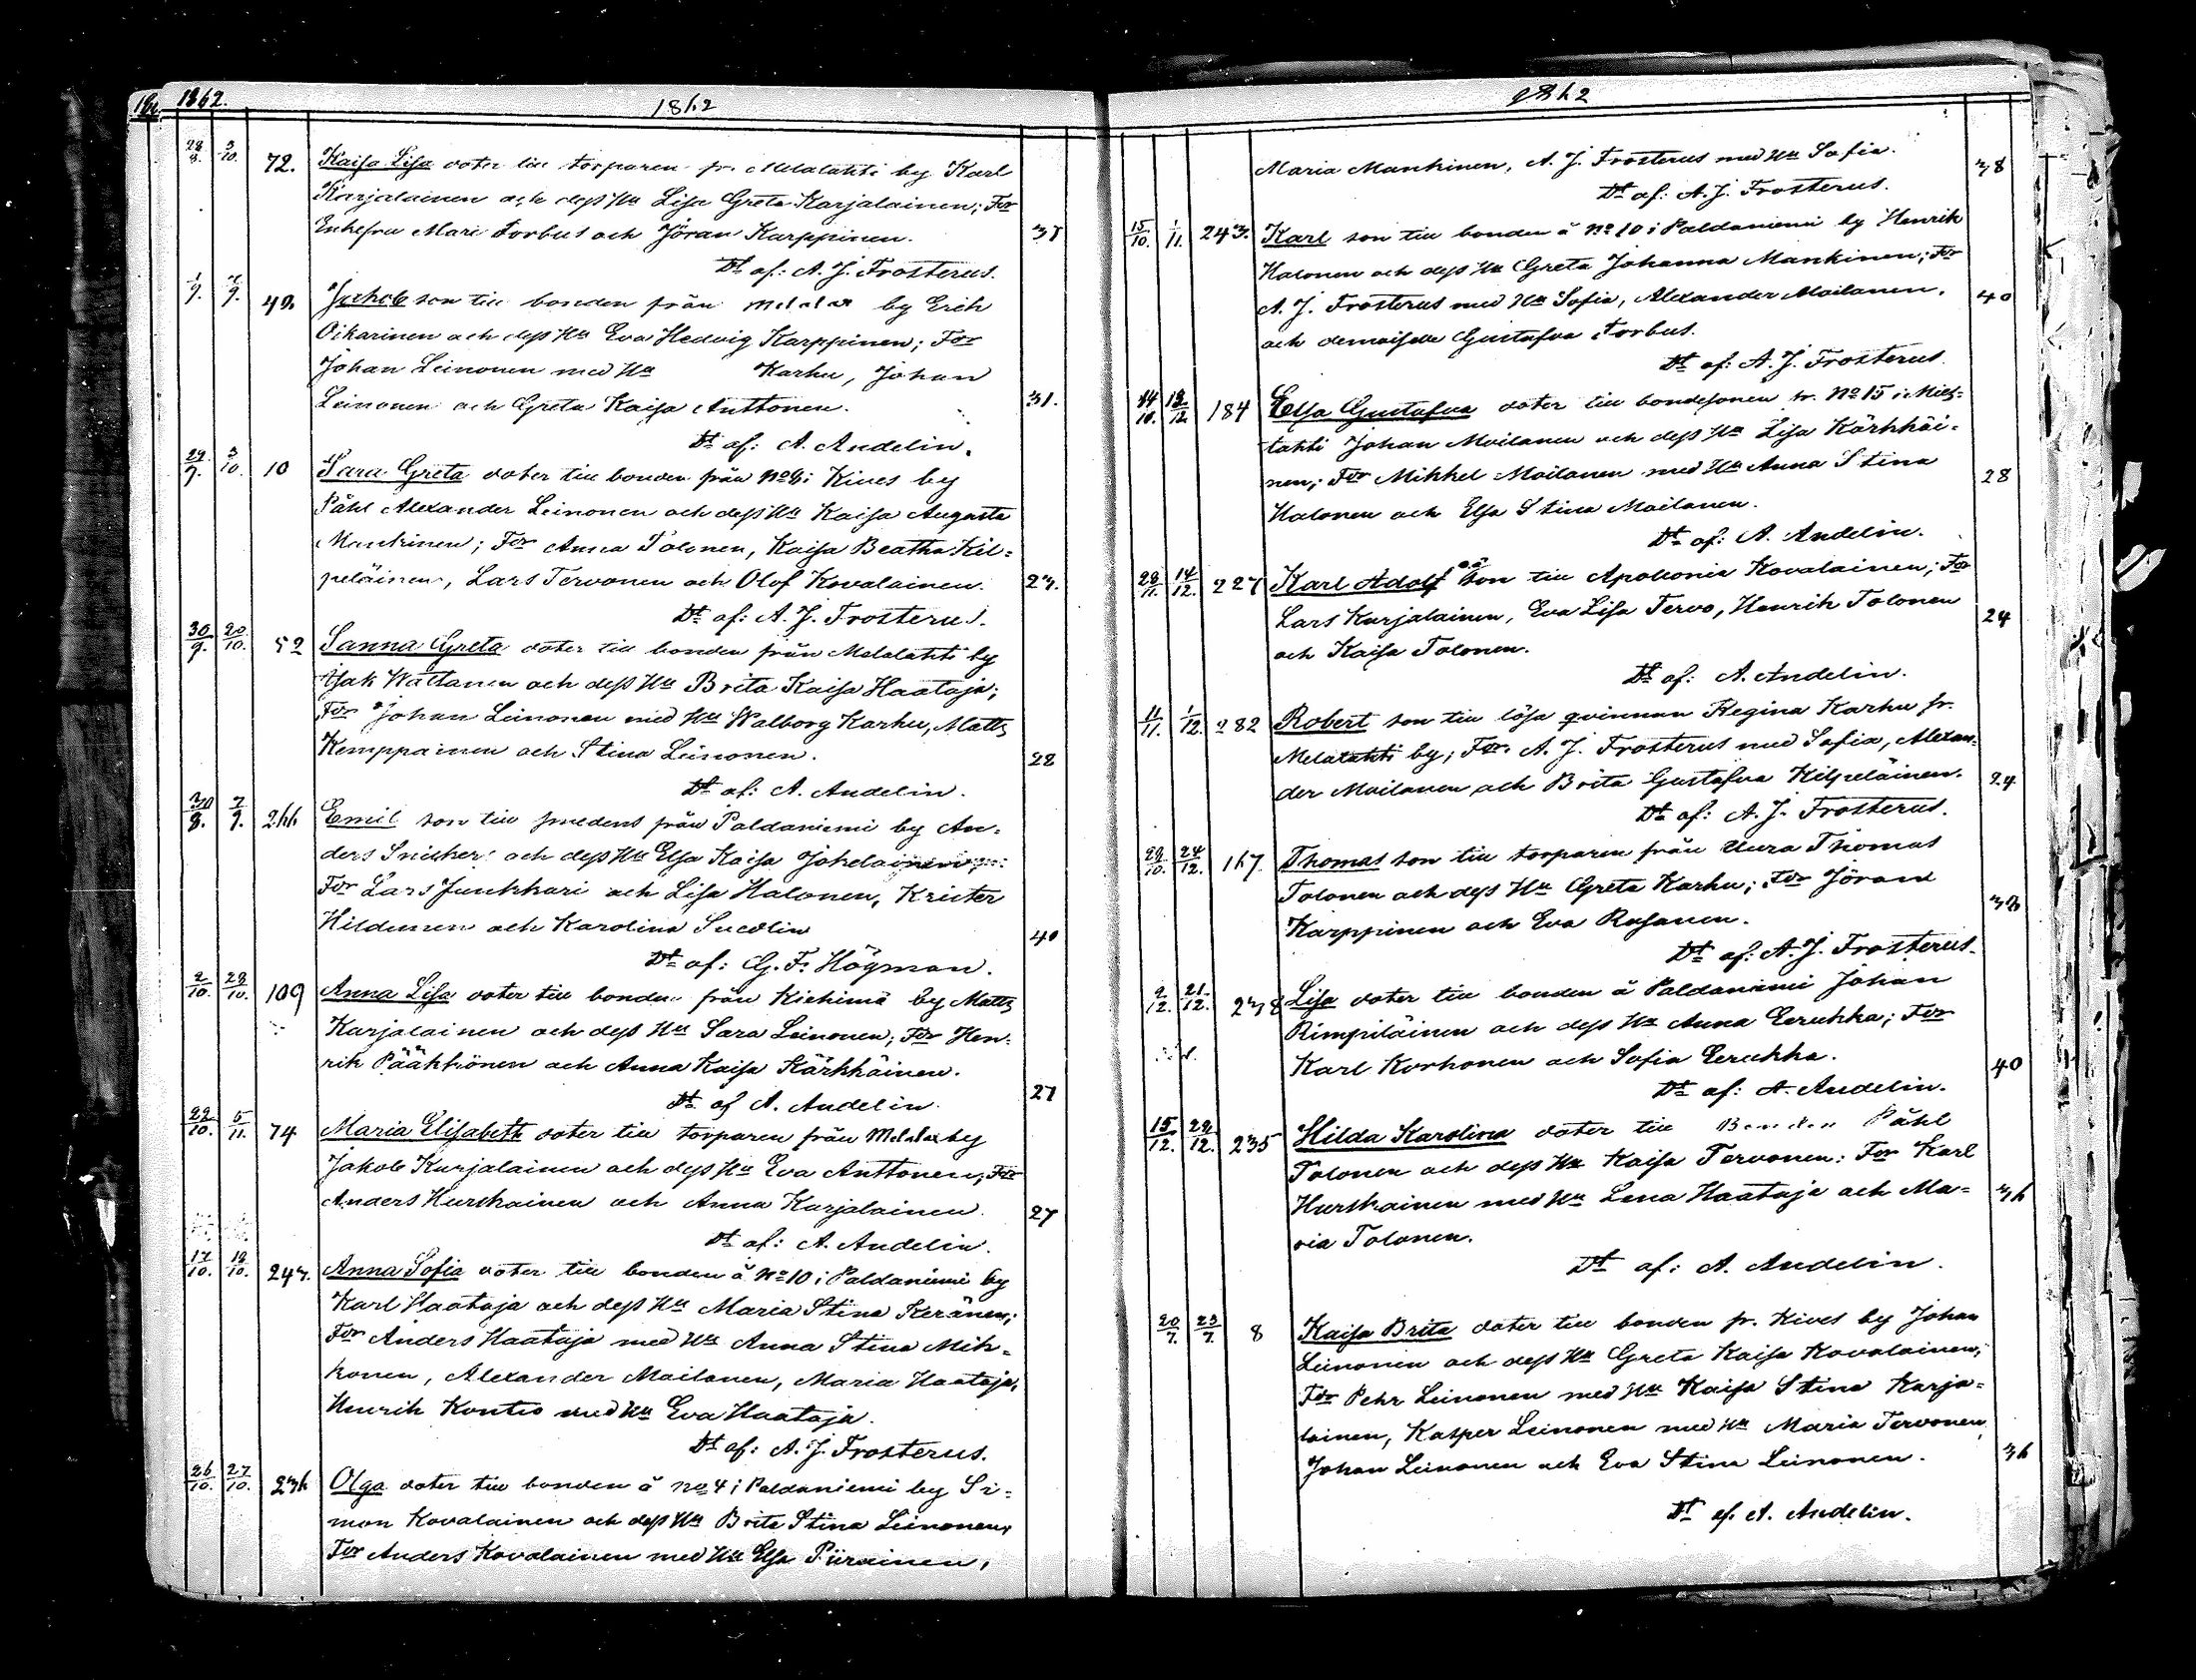 1862. 1862
28/8. 3/10. 72. Kaisa Lisa doter till torparen fr. Melalahti by Karl
Karjalainen och dess Hu Lisa Greta Karjalainen; For
Enkefru Mari Forbus och Jöran Karppinen. 37
Dt af: A. J. Frosterus.
1/9. 7/9. 49. Jakob son till bonden från Melalax by Erik
Oikarinen och dess Hu Eva Hedvig Karppinen; For
Johan Leinonen med Hu Karhu, Johan
Leinonen och Greta Kaisa Anttonen. 31.
Dt af: A. Andelin.
29/9. 3/10. 10 Sara Greta doter till bonden från No 9 i Kives by
Påhl Alexander Leinonen och dess Hu Kaisa Augusta
Mankinen; For Anna Tolonen, Kaisa Beatha Kil=
peläinen, Lars Tervonen och Olof Kovalainen. 27.
Dt af: A. J. Frosterus.
30/9. 20/10. 52 Sanna Greta doter till bonden från Melalahti by
Isak Wättanen och dess Hu Brita Kaisa Haataja;
For Johan Leinonen med Hu Walborg Karhu, Matts
Kemppainen och Stina Leinonen. 28
Dt af: A. Andelin.
30/8. 7/9. 266 Emil son till smedens från Paldaniemi by An=
ders Snicker och dess Hu Elsa Kaisa Jokelainen;
For Lars Junkkari och Lisa Halonen, Krister
Hildunen och Karolina Sucolin 40
Dt af: G. F. Högman.
2/10. 28/10. 109 Anna Lisa doter till bonden från Kiehimä by Matts
Karjalainen och dess Hu Sara Leinonen; For Hen=
rik Pääkkönen och Anna Kaisa Kärkkäinen. 27
Dt af A. Andelin.
22/10. 5/11. 74 Maria Elisabeth doter till torparen från Melalax by
Jakob Karjalainen och dess Hu Eva Anttonen; For
Anders Hurskainen och Anna Karjalainen. 27
Dt af: A. Andelin.
17/10. 19/10. 247. Anna Sofia doter till bonden å No 10 i Paldaniemi by
Karl Haataja och dess Hu Maria Stina Keränen;
For Anders Haataja med Hu Anna Stina Mik=
konen, Alexander Moilanen, Maria Haataja,
Henrik Kontio med Hu Eva Haataja.
Dt af: A. J. Frosterus.
26/10. 27/10. 236 Olga doter till bonden å No 4 i Paldaniemi by Si=
mon Kovalainen och dess Hu Brita Stina Leinonen;
For Anders Kovalainen med Hu Elsa Piirainen,
1862
Maria Mankinen, A. J. Frosterus med Hu Sofia. 38
Dt af: A. J. Frosterus.
15/10. 1/11. 243. Karl son till bonden å No 10 i Paldaniemi by Henrik
Halonen och dess Hu Greta Johanna Mankinen; For
A. J. Frosterus med Hu Sofia, Alexander Moilanen, 40
och demoiselle Gustafva Forbus.
Dt af: A. J. Frosterus.
14/10. 13/12 184 Elsa Gustafva doter till bondesonen fr. No 15 i Mies=
lahti Johan Moilanen och dess Hu Lisa Kärkkäi=
nen; For Mikkel Moilanen med Hu Anna Stina 28
Halonen och Elsa Stina Moilanen.
Dt af: A. Andelin.
28/11. 14/12. 227 Karl Adolf oä son till Apollonia Kovalainen; For
Lars Karjalainen, Eva Lisa Tervo, Henrik Tolonen 24
och Kaisa Tolonen.
Dt af: A. Andelin.
11/11. 1/12. 282 Robert son till lösa qvinnan Regina Karhu fr.
Melalahti by; For. A. J. Frosterus med Sofia, Alexan=
der Moilanen och Brita Gustafva Kilpeläinen. 24
Dt af: A. J. Frosterus.
29/10. 24/12. 167. Thomas son till torparen från Uura Thomas
Tolonen och dess Hu Greta Karhu; For Jöran 38
Karppinen och Eva Rusanen.
Dt af: A. J. Frosterus.
9/12. 21/12. 238 Lisa doter till bonden å Paldaniemi Johan
Rimpiläinen och dess Hu Anna Eerukka; For
Karl Korhonen och Sofia Eerukka. 40
Dt af: A. Andelin.
15/12. 29/12. 235 Hilda Karolina doter till Bonden Påhl
Tolonen och dess Hu Kaisa Tervonen: For Karl
Hurskainen med Hu Lena Haataja och Ma= 36
ria Tolonen.
Dt af: A. Andelin.
20/7. 23/7. 8 Kaisa Brita doter till bonden fr. Kives by Johan
Leinonen och dess Hu Greta Kaisa Kovalainen;
For Pehr Leinonen med Hu Kaisa Stina Karja=
lainen, Kasper Leinonen med Hu Maria Tervonen,
Johan Leinonen och Eva Stina Leinonen. 36
Dt af. A. Andelin.